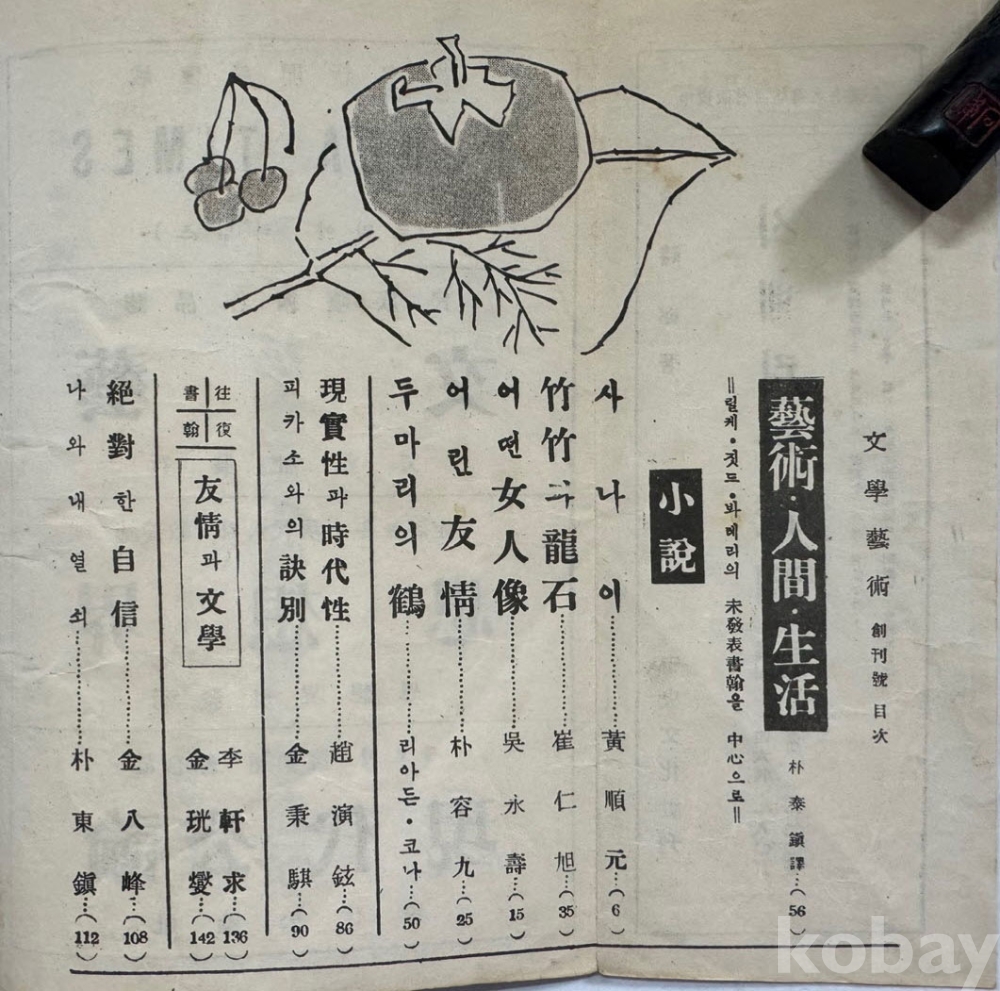 文學藝術 創刊號 目次
藝術·人間·生活
朴泰鎭譯…(56)
=릴케·짓드·봐레리의 未發表書翰을 中心으로=
小說
사나이……黃順元…(6)
竹竹과龍石……崔仁旭…(35)
어떤女人像……吳永壽…(15)
어린友情……朴容九…(25)
두마리의鶴……리아든·코나…(50)
現實性과時代性……趙演鉉…(86)
피카소와의訣別……金秉騏…(90)
往復書翰
友情과文學
李軒求…(136)
金珖燮…(142)
絕對한自信……金八峰…(108)
나와내열쇠……朴東鎭…(112)
kobay